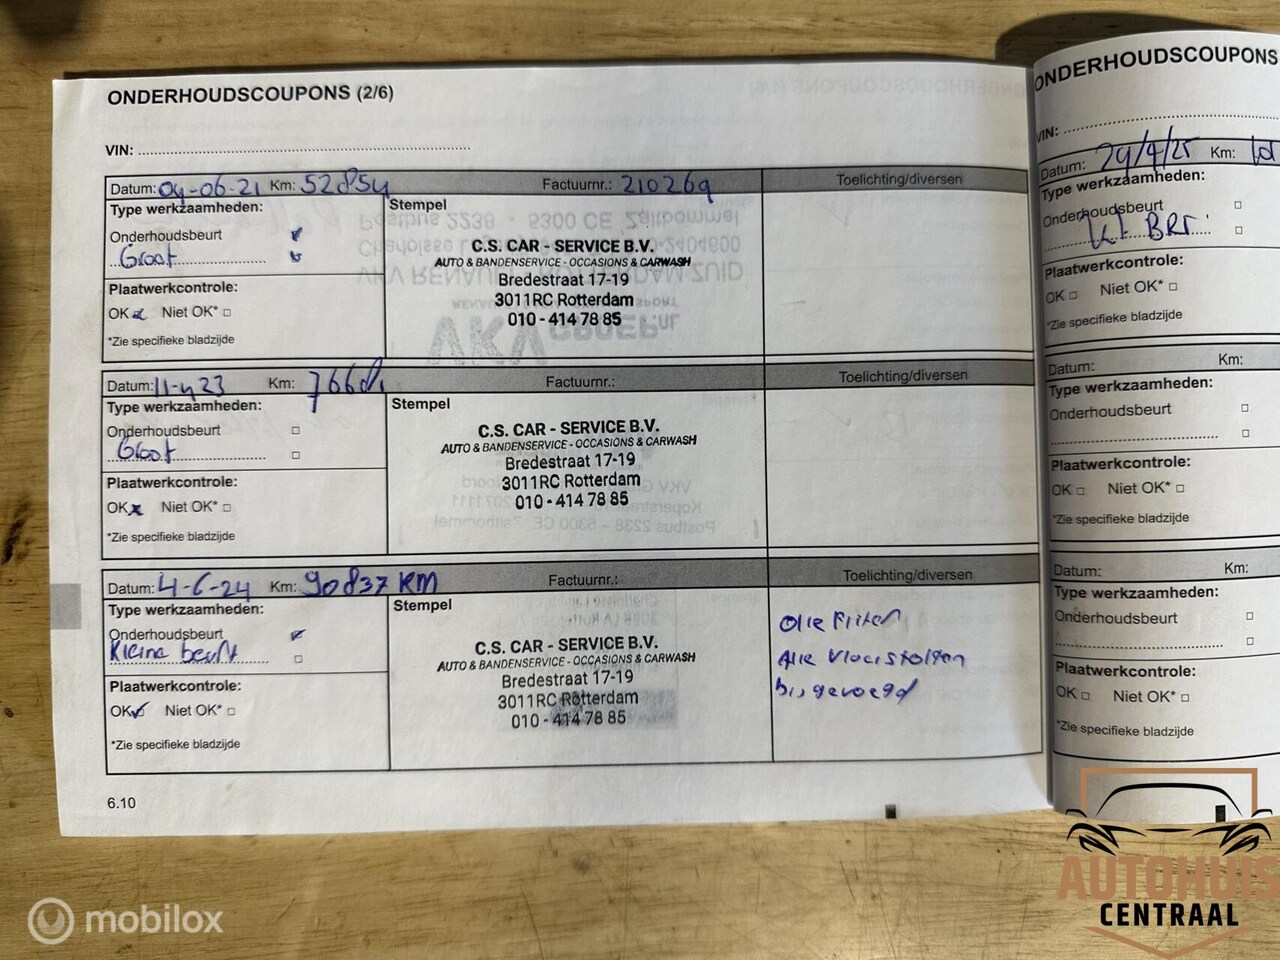 ONDERHOUDSCOUPONS (2/6)
VIN:
Datum: 04-06-21 Km: 52854 Factuurnr.: 210269 Toelichting/diversen
Type werkzaamheden: Stempel
Onderhoudsbeurt
Groot
Plaatwerkcontrole:
OK Niet OK*
*Zie specifieke bladzijde
C.S. CAR - SERVICE B.V.
AUTO & BANDENSERVICE - OCCASIONS & CARWASH
Bredestraat 17-19
3011RC Rotterdam
010 - 414 78 85
Datum: 11-4-23 Km: Factuurnr.: Toelichting/diversen
Type werkzaamheden: Stempel
Onderhoudsbeurt
Groot
Plaatwerkcontrole:
OK Niet OK*
*Zie specifieke bladzijde
C.S. CAR - SERVICE B.V.
AUTO & BANDENSERVICE - OCCASIONS & CARWASH
Bredestraat 17-19
3011RC Rotterdam
010 - 414 78 85
Datum: 4-6-24 Km: 90837 KM Factuurnr.: Toelichting/diversen
Type werkzaamheden: Stempel
Onderhoudsbeurt
Kleine beurt
Plaatwerkcontrole:
OK Niet OK*
*Zie specifieke bladzijde
C.S. CAR - SERVICE B.V.
AUTO & BANDENSERVICE - OCCASIONS & CARWASH
Bredestraat 17-19
3011RC Rotterdam
010 - 414 78 85
Olie Filter
Alle Vloeistoffen
bijgevoegd
6.10
ONDERHOUDSCOUPONS
VIN:
Datum: 29/4/25 Km:
Type werkzaamheden:
Onderhoudsbeurt
Kl BRT.
Plaatwerkcontrole:
OK Niet OK*
*Zie specifieke bladzijde
Datum: Km:
Type werkzaamheden:
Onderhoudsbeurt
Plaatwerkcontrole:
OK Niet OK*
*Zie specifieke bladzijde
Datum: Km:
Type werkzaamheden:
Onderhoudsbeurt
Plaatwerkcontrole:
OK Niet OK*
*Zie specifieke bladzijde
AUTOHUIS
CENTRAAL
mobilox